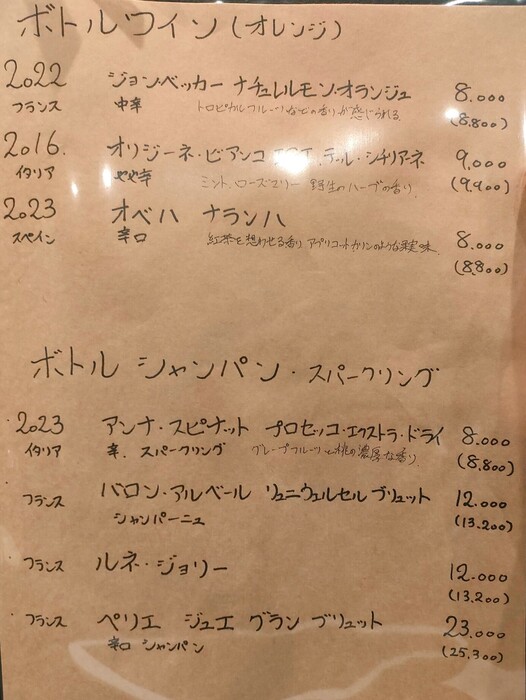 ボトルワイン(オレンジ)
2022 ジョン・ベッカー ナチュレルモン・オランジュ 8.000
フランス 中辛 トロピカルフルーツなどの香りが感じられる (8.800)
2016. オリジーネ・ビアンコ テッレ・シチリアーネ 9,000
イタリア やや辛 ミント、ローズマリー 野生のハーブの香り (9.900)
2023 オベハ ナランハ
スペイン 辛口 紅茶を想わせる香り アプリコット カリンのような果実味 8.000
(8.800)
ボトル シャンパン・スパークリング
2023 アンナ・スピナット プロセッコ・エクストラ・ドライ 8.000
イタリア 辛. スパークリング グレープフルーツと桃の濃厚な香り (8.800)
フランス バロン・アルベール リュニヴェルセル ブリュット 12.000
シャンパーニュ (13.200)
フランス ルネ・ジョリー 12.000
(13.200)
フランス ペリエ ジュエ グラン ブリュット 23.000
辛口 シャンパン (25.300)